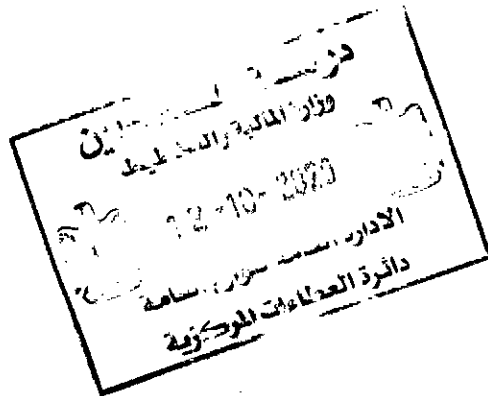 وزارة المالية والتخطيط
12-10-2020
الادارة العامة للوازم العامة
دائرة العطاءات المركزية